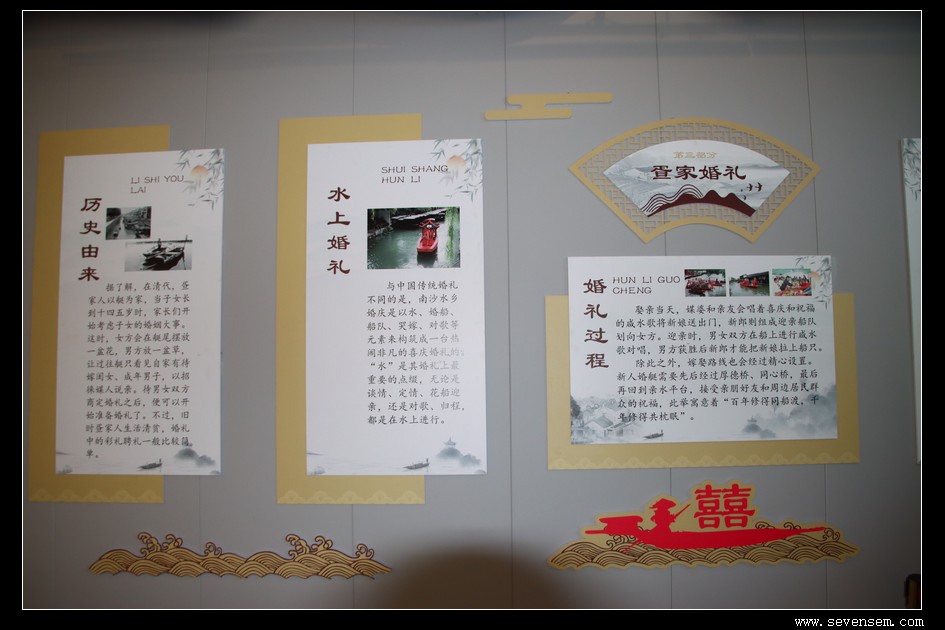 LI SHI YOU
LAI
历史由来
据了解，在清代，疍
家人以艇为家，当子女长
到十四五岁时，家长们开
始考虑子女的婚姻大事。
这时，女方会在艇尾摆放
一盆花，男方放一盆草，
让过往艇只看见自家有待
嫁闺女、成年男子，以招
徕媒人说亲。待男女双方
商定婚礼之后，便可以开
始准备婚礼了。不过，旧
时疍家人生活清贫，婚礼
中的彩礼聘礼一般比较简
单。
SHUI SHANG
HUN LI
水上婚礼
与中国传统婚礼
不同的是，南沙水乡
婚庆是以水、婚船、
船队、哭嫁、对歌等
元素来构筑成一台热
闹非凡的喜庆婚礼的：
“水”是其婚礼上最
重要的点缀，无论是
谈情、定情、花船迎
亲，还是对歌、归程，
都是在水上进行。
第三部分
疍家婚礼
HUN LI GUO
CHENG
婚礼过程
娶亲当天，媒婆和亲友会唱着喜庆和祝福
的咸水歌将新娘送出门，新郎则组成迎亲船队
划向女方。迎亲时，男女双方在船上进行咸水
歌对唱，男方获胜后新郎才能把新娘拉上船只。
除此之外，嫁娶路线也会经过精心设置。
新人婚艇需要先后经过厚德桥、同心桥，最后
再回到亲水平台，接受亲朋好友和周边居民群
众的祝福，此举寓意着“百年修得同船渡，千
年修得共枕眠”。
囍
www.sevensem.com